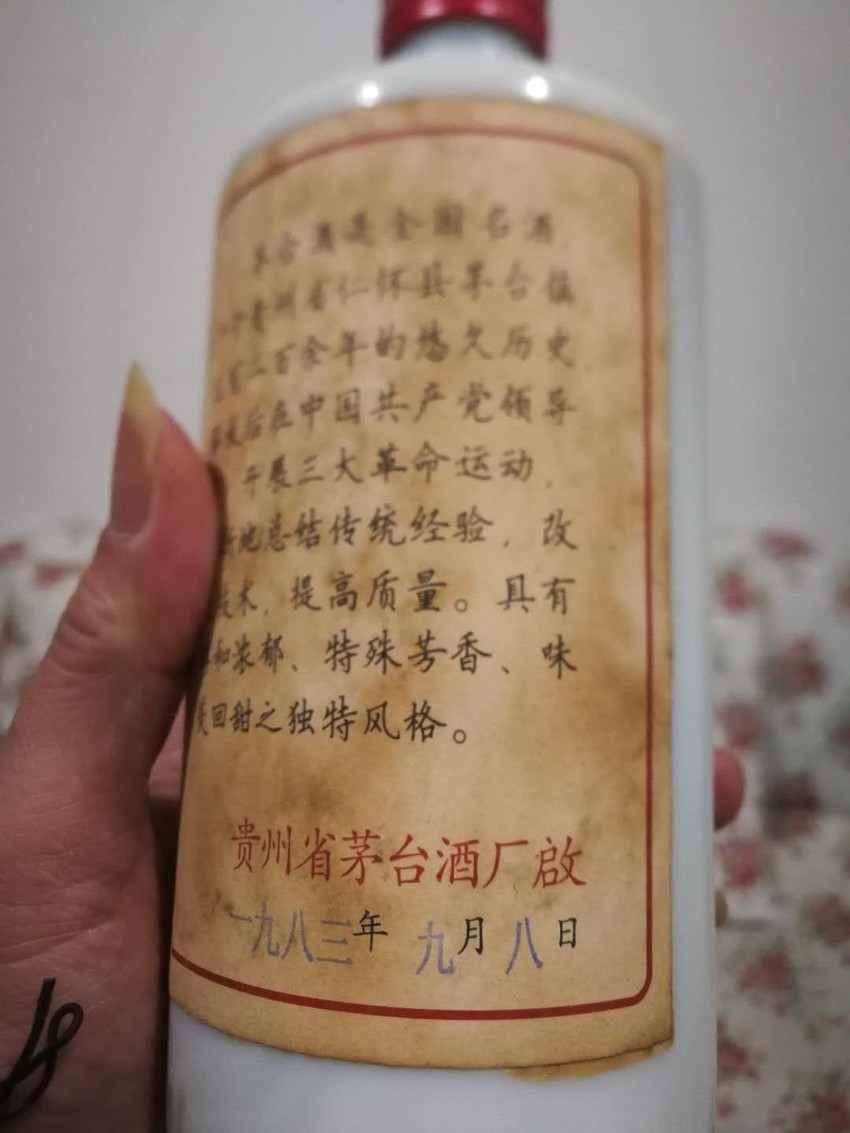 茅台酒是全国名酒，
于贵州省仁怀县茅台镇，
有二百余年的悠久历史，
放后在中国共产党领导
开展三大革命运动，
断地总结传统经验，改
技术，提高质量。具有
和浓郁、特殊芳香、味
回甜之独特风格。
贵州省茅台酒厂啟
一九八三年 九月八日